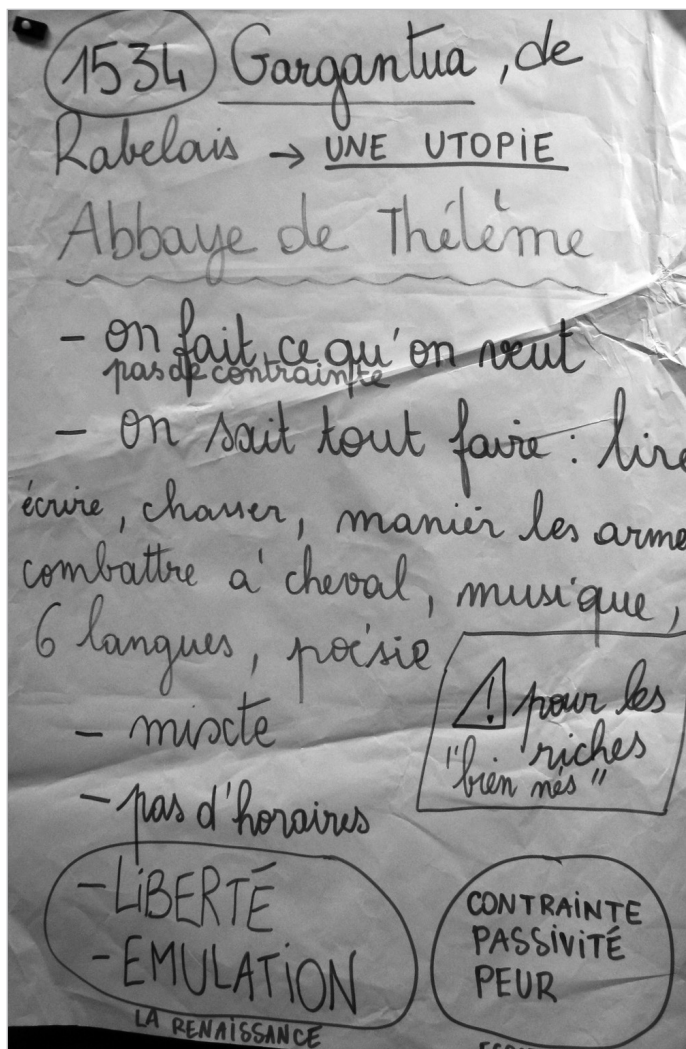 1534 Gargantua, de
Rabelais → UNE UTOPIE
Abbaye de Thélème
- on fait ce qu'on veut
pas de contrainte
- on sait tout faire : lire
écrire, chasser, manier les arme
combattre à cheval, musique,
6 langues, poésie
⚠ pour les
riches
"bien nés"
- mixte
- pas d'horaires
- LIBERTÉ
- EMULATION
LA RENAISSANCE
CONTRAINTE
PASSIVITÉ
PEUR